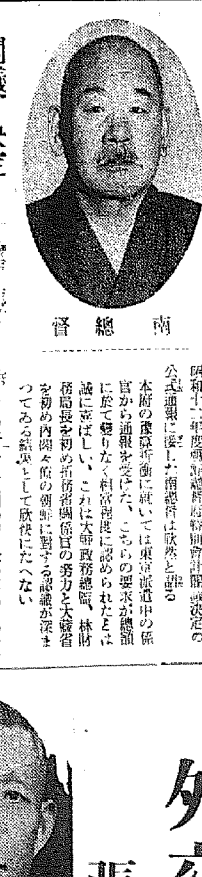 南總督
昭和十二年度朝鮮總督府特別會計閣議決定の
公式通報に接した南總督は欣然と語る
本府の豫算折衝に就いては東京派遣中の係
官から通報を受けた、こちらの要求が總額
に於て變りなく相當程度に認められたとは
誠に喜ばしい、これは大野政務總監、林財
務局長を初め拓務省關係官の努力と大藏省
を初め內閣々僚の朝鮮に對する認識が深ま
つてゐる結果として欣快にたへない
外